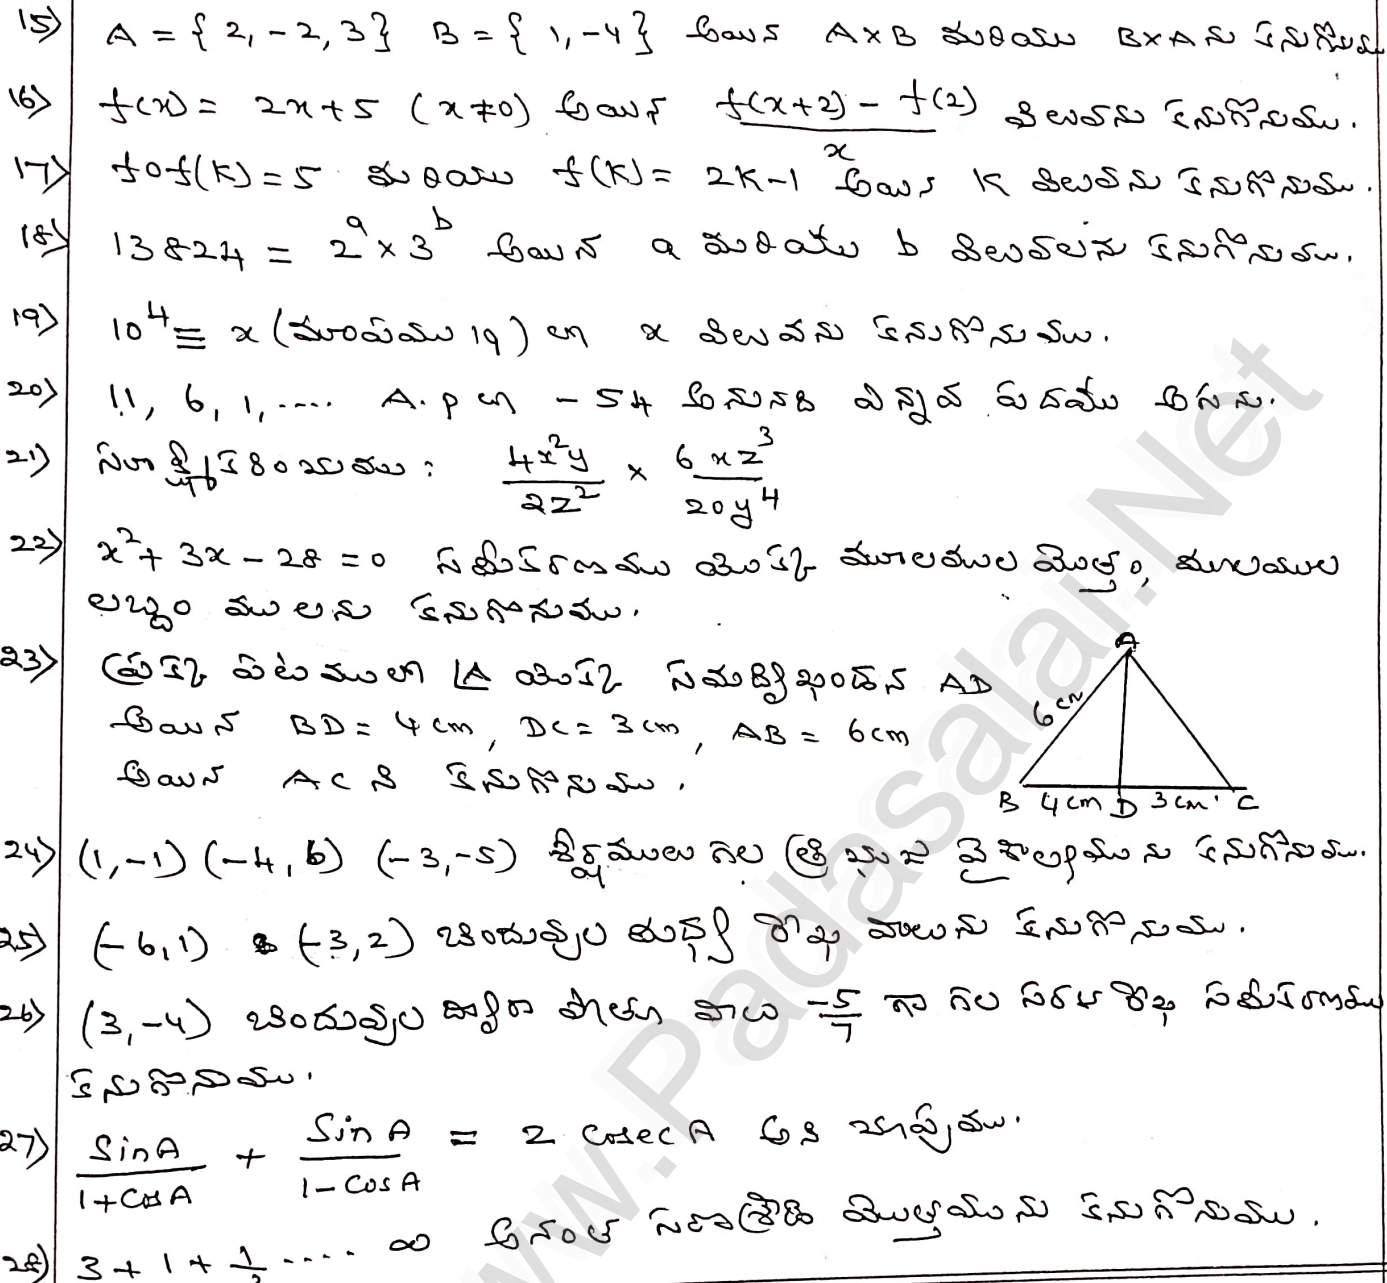 15) A = {2, -2, 3} B = {1, -4} అయిన A×B మరియు B×A ను కనుగొనుము
16) f(x) = 2x+5 (x≠0) అయిన f(x+2) - f(2) / x విలువను కనుగొనుము.
17) fof(K) = 5 మరియు f(K) = 2K-1 అయిన K విలువను కనుగొనుము.
18) 13824 = 2^a × 3^b అయిన a మరియు b విలువలను కనుగొనుము.
19) 10^4 ≡ x (మాపము 19) లో x విలువను కనుగొనుము.
20) 11, 6, 1, .... A.P లో -54 అనునది ఎన్నవ పదము అగును.
21) సూక్ష్మీకరించుము : 4x²y / 2z² × 6xz³ / 20y⁴
22) x² + 3x - 28 = 0 సమీకరణము యొక్క మూలముల మొత్తం, మూలముల
లబ్దం ములను కనుగొనుము.
23) ప్రక్క పటములో ∠A యొక్క సమద్విఖండన AD
అయిన BD = 4cm, DC = 3cm, AB = 6cm
అయిన AC ని కనుగొనుము.
A
6cm
B 4cm D 3cm C
24) (1,-1) (-4, 6) (-3,-5) శీర్షములు గల త్రిభుజ వైశాల్యమును కనుగొనుము.
25) (-6,1) & (-3,2) బిందువుల మధ్య రేఖ వాలును కనుగొనుము.
26) (3,-4) బిందువుల ద్వారా పోతూ వాలు -5/7 గా గల సరళ రేఖ సమీకరణము
కనుగొనుము.
27) SinA / 1+CosA + SinA / 1-CosA = 2 CosecA అని చూపుము.
28) 3 + 1 + 1/3 .... ∞ అనంత సరాశ్రేఢి మొత్తమును కనుగొనుము.
www.Padasalai.Net